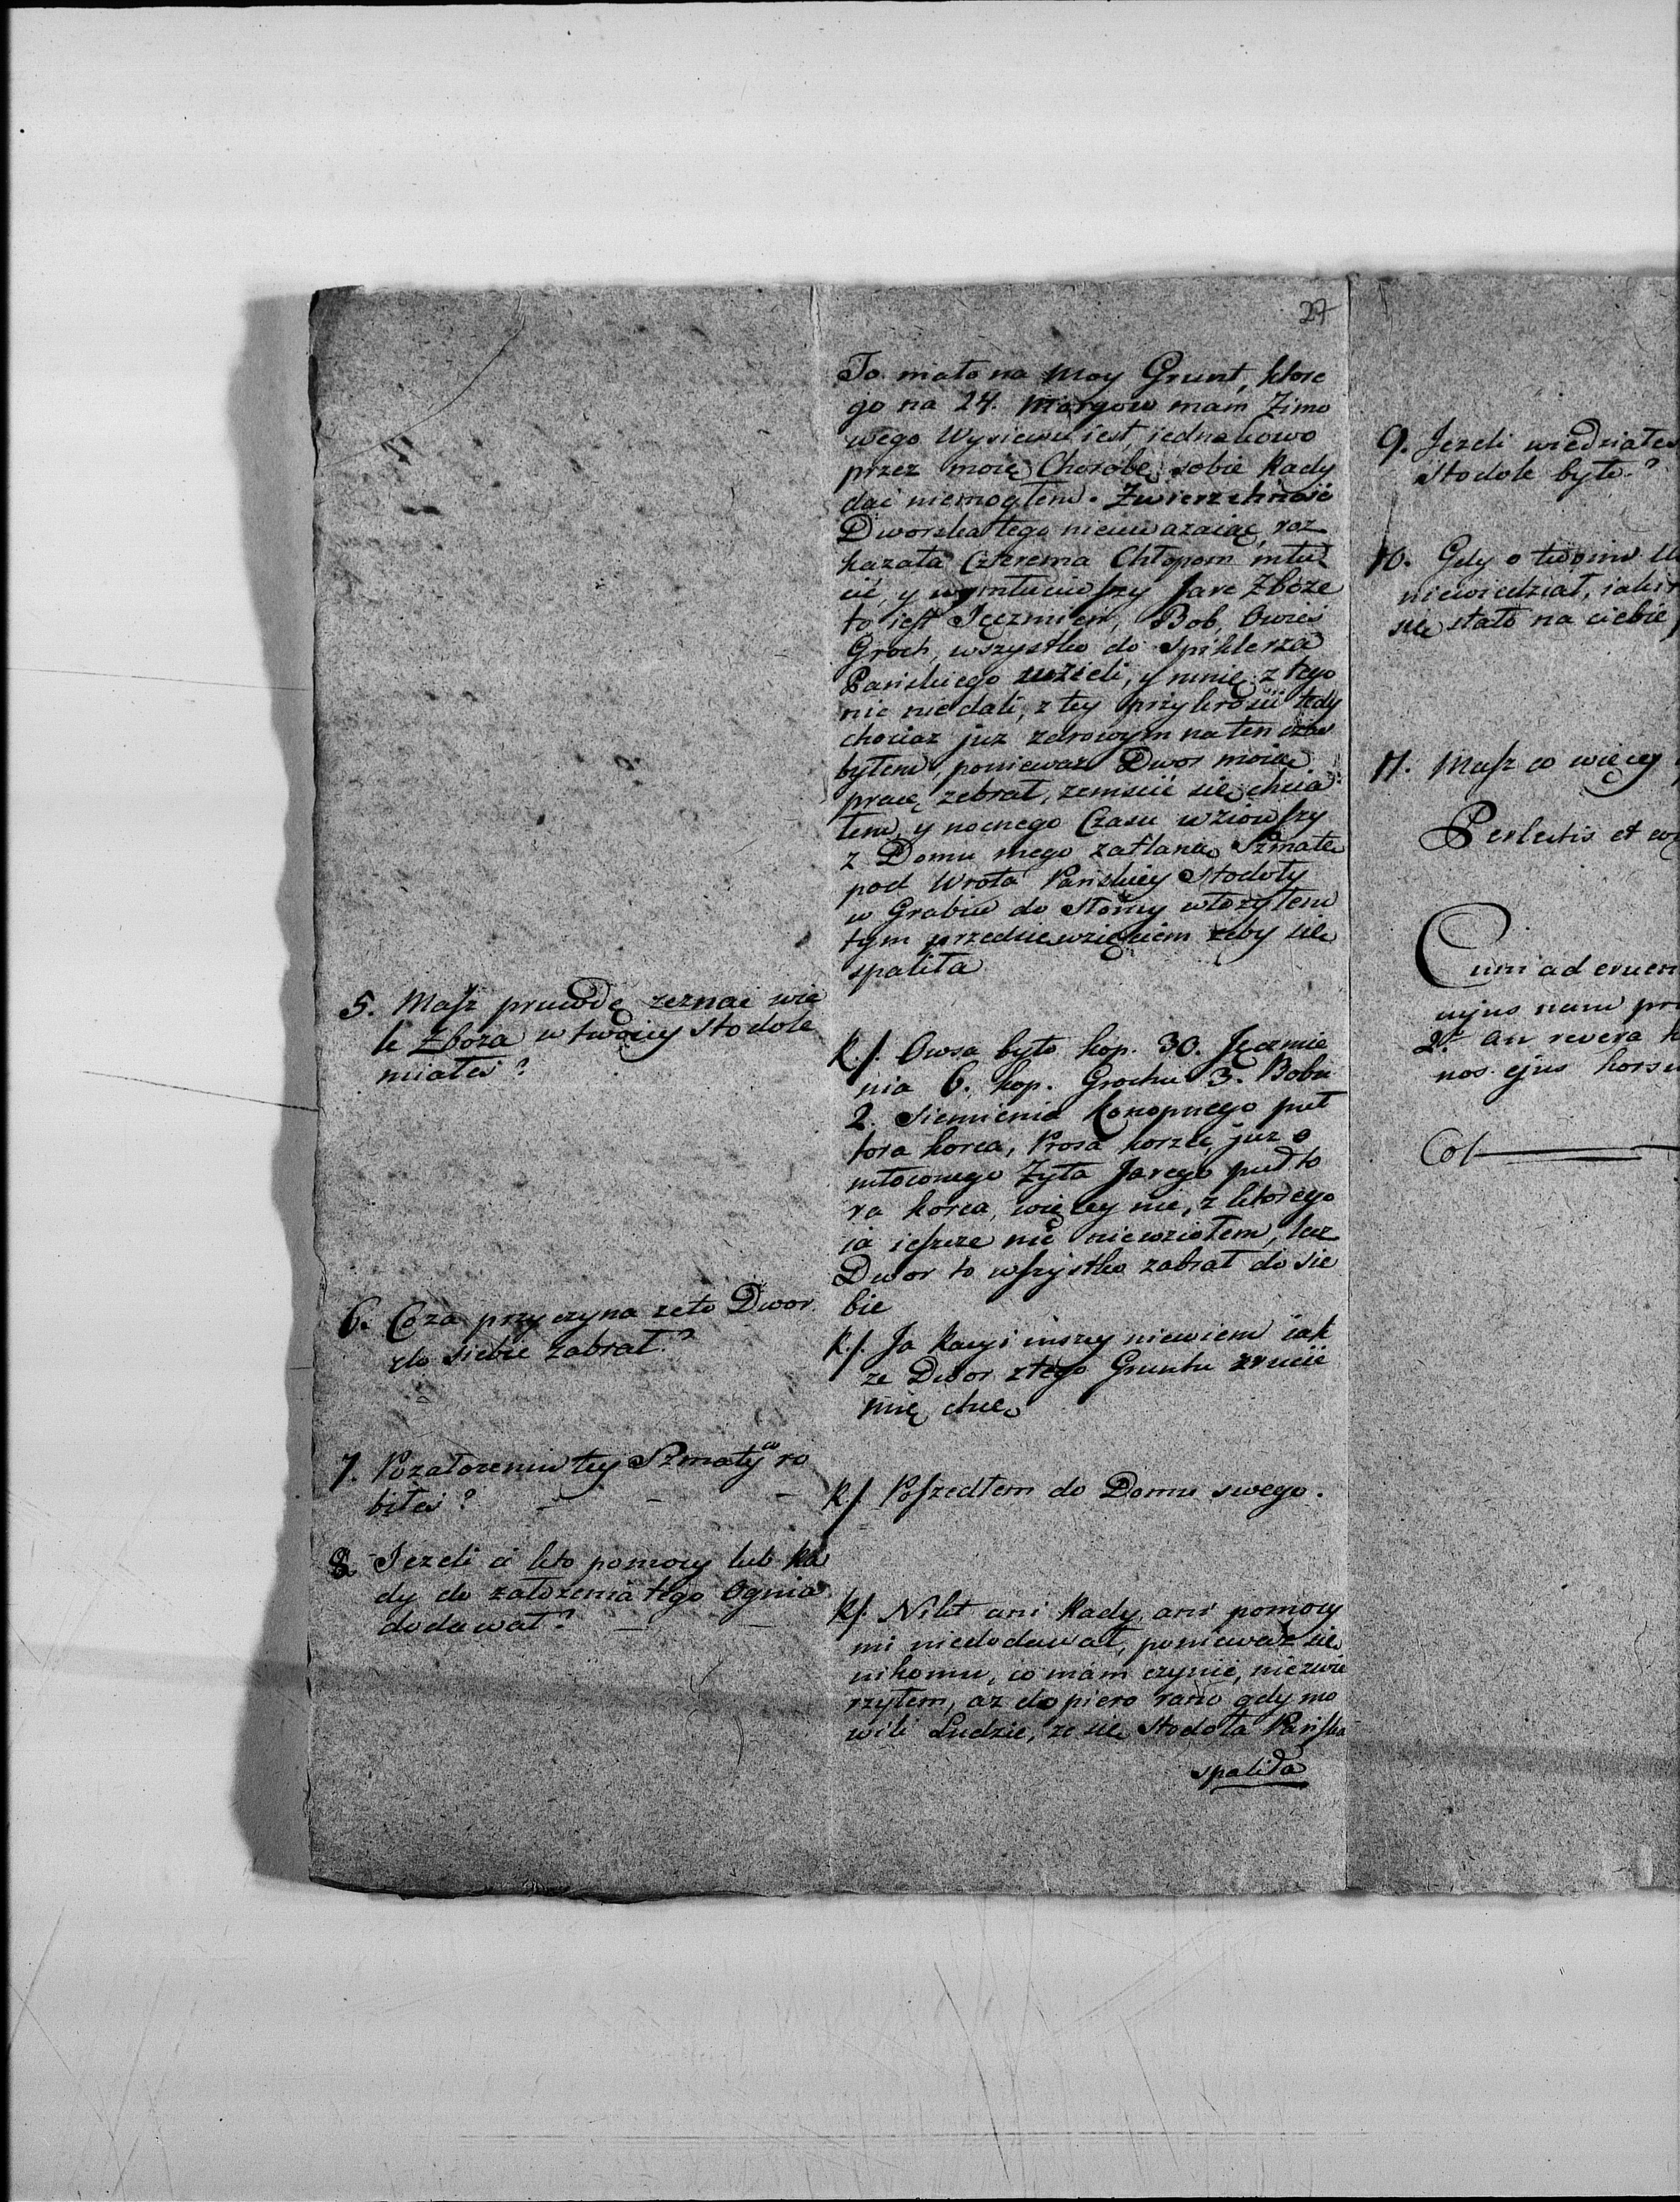 27
To mało na moy Grunt, ktore
go na 24. morgow mam Zimo
wego Wysiewu iest, iednakowo
przez moię Chorobę sobie Rady
dać niemogłem. Zwierzchność
Dworska tego nieuwazaiąc, roz
kazała Czterema Chłopom młu
cić, y wymłuciwszy Jare Zboże
to iest Jęczmień, Bob, Owies
Groch, wszystko do Spiklerza
Pańskiego wzieli, y mnię z tego
nic nie dali, z tey przykrości tedy
chociaz juz zdrowym na ten czas
byłem, poniewaz Dwor moię
pracę zebrał, zemscić się chcia
łem, y nocnego Czasu wziowszy
z Domu mego zatlaną Szmatę
pod Wrota Pańskiey Stodoły
w Grabiu do Słomy włozyłem
tym przedsiewzięciem zeby się
spaliła
5. Masz prawdę zeznać wie
le Zboza w twoiey Stodole
miałeś?
R./. Owsa było kop. 30. Jęczmie
nia 6. kop. Grochu 3. Bobu
2. Siemienia Konopnego puł
tora korca, Prosa korzec, juz o
młoconego Zyta Jarego puł to
ra korca, więcey nie, z ktorego
ia ieszcze nic niewziołem, lecz
Dwor to wszystko zabrał do sie
bie
6. Co za przyczyna ze to Dwor
do siebie zabrał?
R./. Ja Racyi inszey niewiem iak
ze Dwor z tego Gruntu zrucić
mię chce
7. Po załozeniu tey Szmaty co ro
biłeś? - - -
R/. Poszedłem do Domu swego.
8. Jezeli ci kto pomocy lub Ra
dy do załozenia tego Ognia
dodawał? - -
R/. Nikt ani Rady, ani pomocy
mi niedodawał, poniewaz się
nikomu, co mam czynić, niezwie
rzyłem, az dopiero rano gdy mo
wili Ludzie, ze się Stodoła Pańska
spaliła
9. Jezeli wiedziałeś
Stodole było?
10. Gdy o twoim
niewiedział, iakim
się stało na ciebie
11. Masz co więcey
Perlectis et
Cum ad eruen
cujus nam
2. an revera
nos ejus
Co/